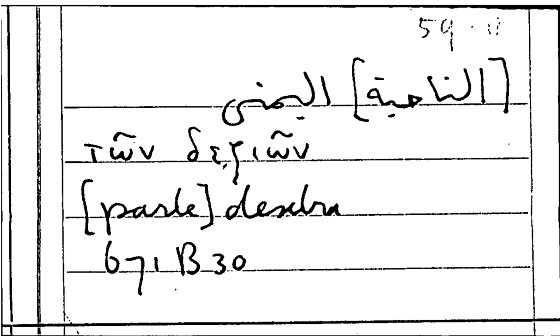 59.11
[الناحية] اليمنى
τῶν δεξιῶν
[parte] dextra
671 B 30